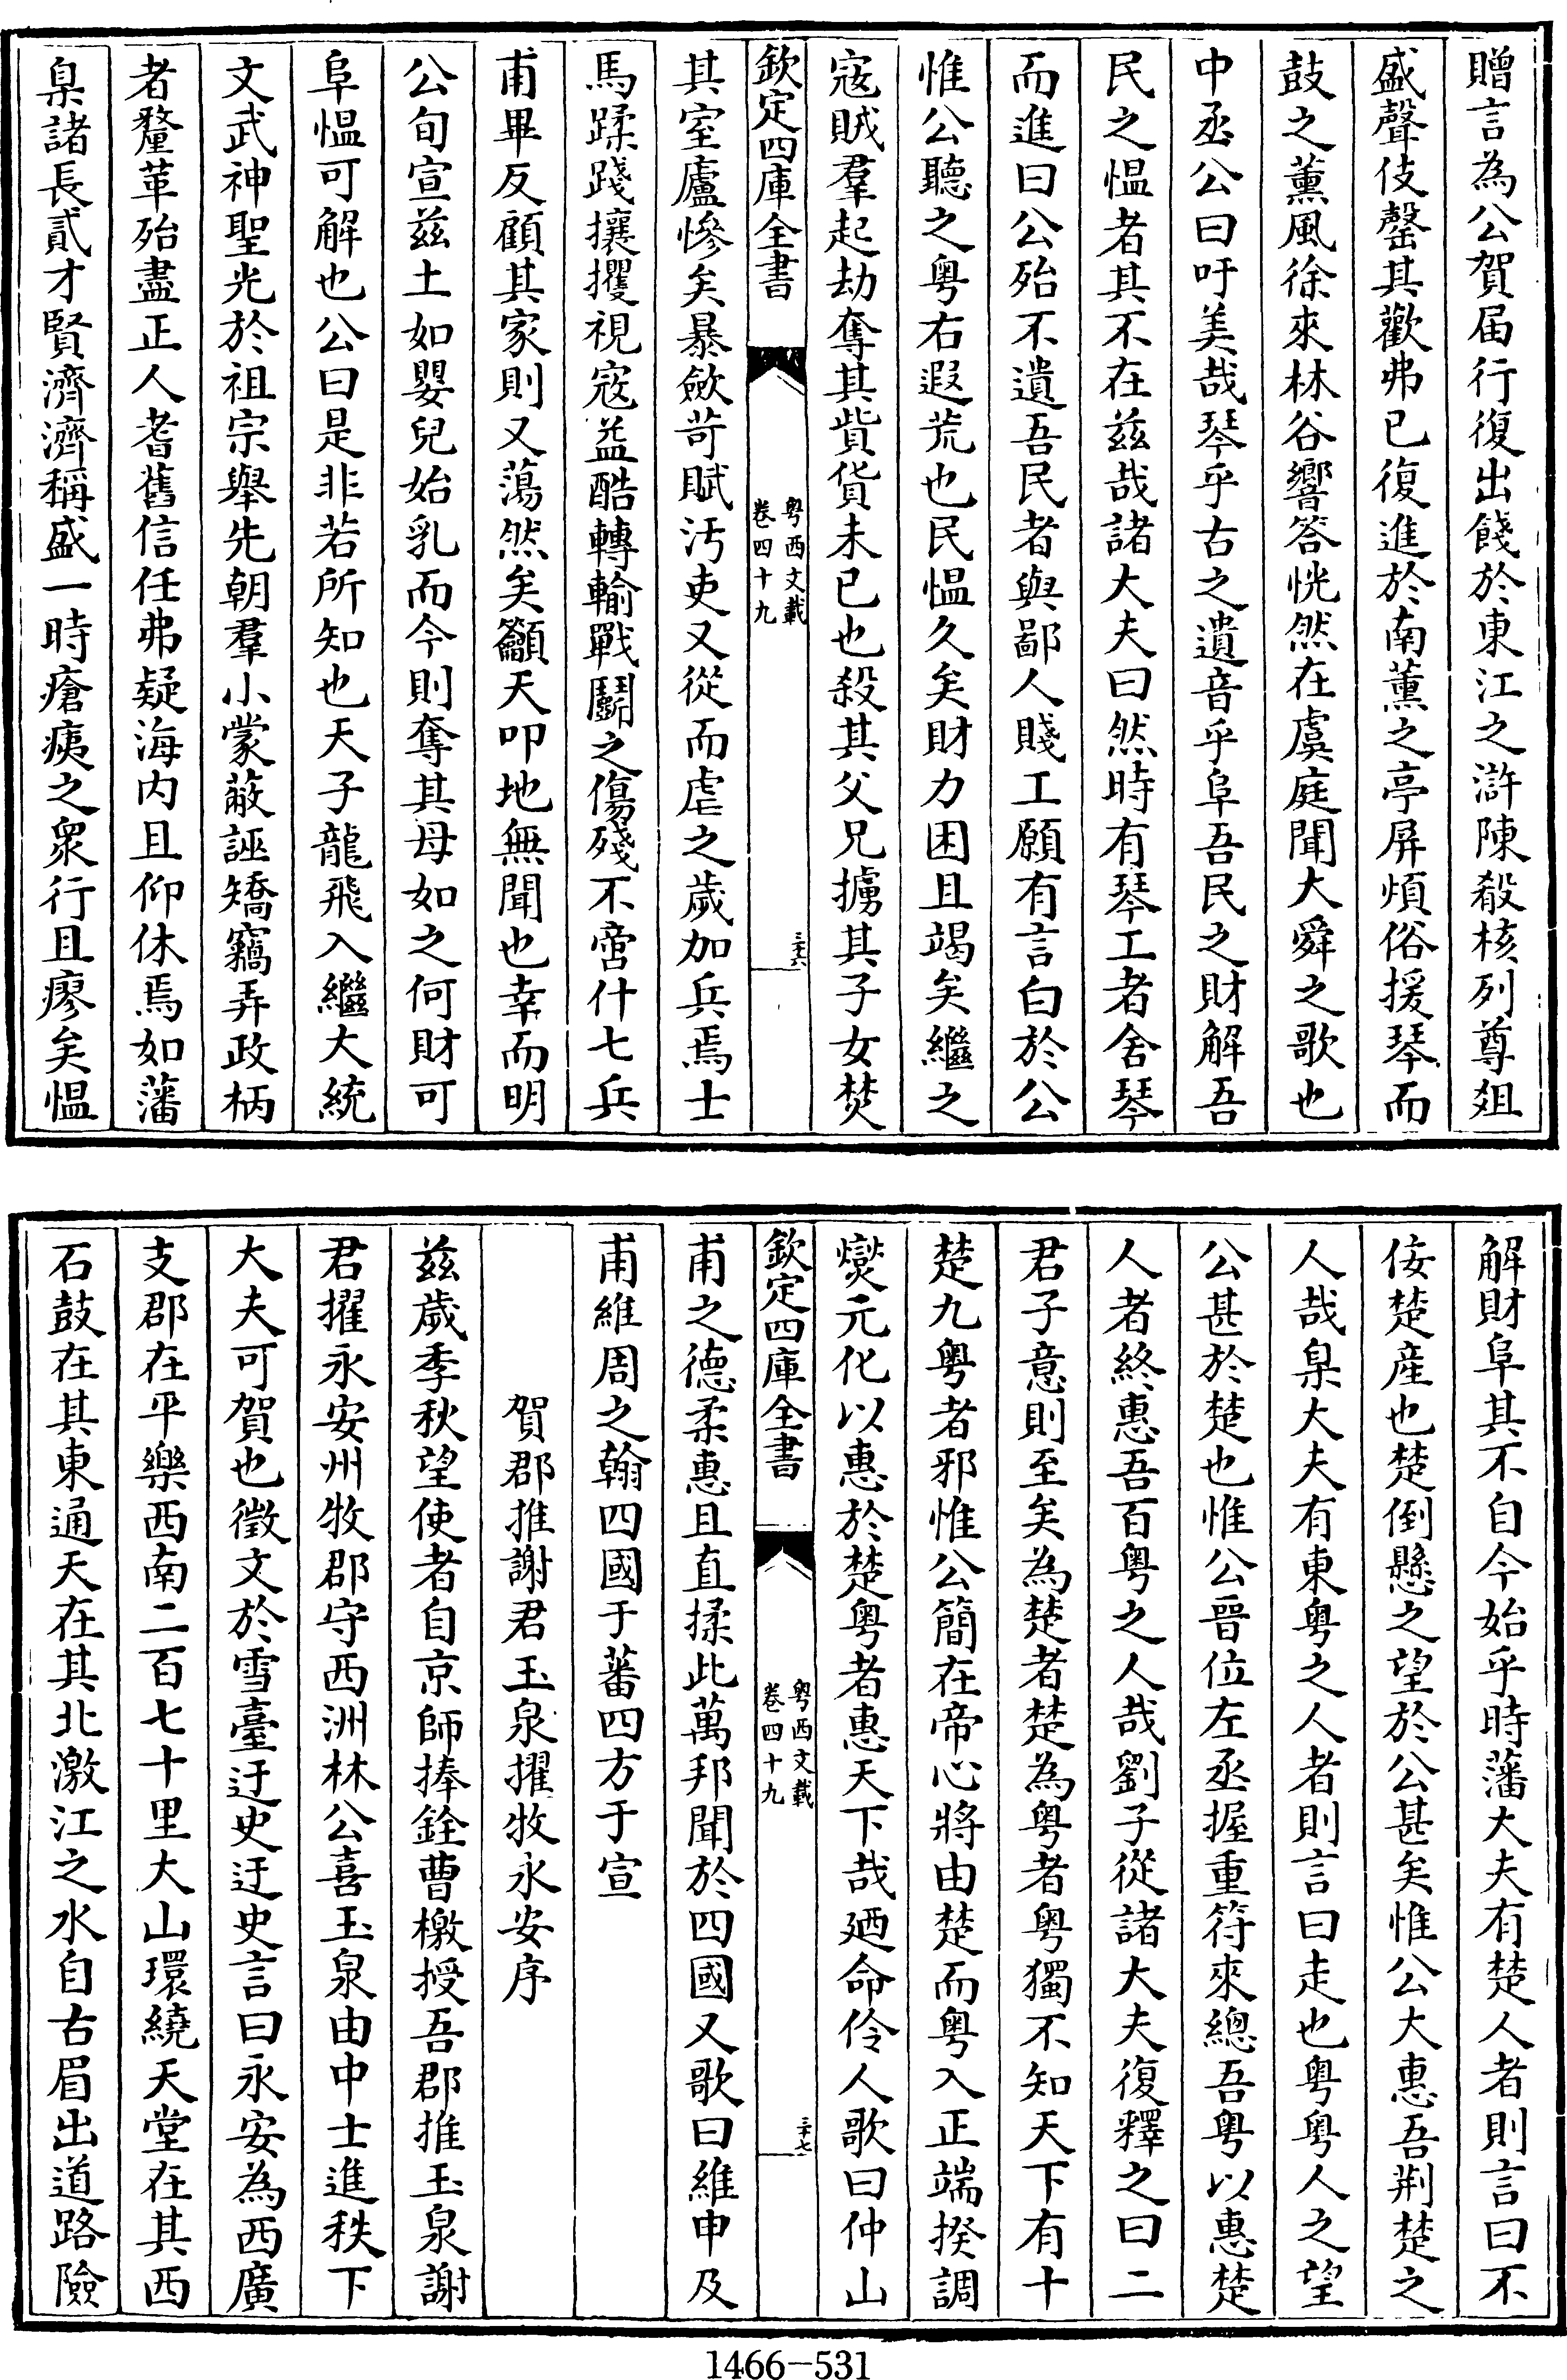 贈言為公賀届行復出餞於東江之滸陳殽核列尊爼
盛聲伎罄其歡弗已復進於南薰之亭屏煩俗援琴而
鼓之薰風徐來林谷響答恍然在虞庭聞大舜之歌也
中丞公曰吁美哉琴乎古之遺音乎阜吾民之財解吾
民之愠者其不在兹哉諸大夫曰然時有琴工者舍琴
而進曰公殆不遺吾民者與鄙人賤工願有言白於公
惟公聽之粤右遐荒也民愠久矣財力困且竭矣繼之
寇賊羣起劫奪其貲貨未已也殺其父兄擄其子女焚
欽定四庫全書
粤西文載
卷四十九
三十六
其室廬慘矣暴歛苛賦汚吏又從而虐之歲加兵焉士
馬蹂踐攘攫視寇益酷轉輸戰鬭之傷殘不啻什七兵
甫畢反顧其家則又蕩然矣籲天叩地無聞也幸而明
公旬宣兹土如嬰兒始乳而今則奪其母如之何財可
阜愠可解也公曰是非若所知也天子龍飛入繼大統
文武神聖光於祖宗舉先朝羣小蒙蔽誣矯竊弄政柄
者釐革殆盡正人耆舊信任弗疑海内且仰休焉如藩
臬諸長貳才賢濟濟稱盛一時瘡痍之衆行且瘳矣愠
解財阜其不自今始乎時藩大夫有楚人者則言曰不
佞楚産也楚倒懸之望於公甚矣惟公大惠吾荆楚之
人哉臬大夫有東粤之人者則言曰走也粤粤人之望
公甚於楚也惟公晉位左丞握重符來總吾粤以惠楚
人者終惠吾百粤之人哉劉子從諸大夫復釋之曰二
君子意則至矣為楚者楚為粤者粤獨不知天下有十
楚九粤者邪惟公簡在帝心將由楚而粤入正端揆調
爕元化以惠於楚粤者惠天下哉廼命伶人歌曰仲山
欽定四庫全書
粤西文載
卷四十九
三十七
甫之德柔惠且直揉此萬邦聞於四國又歌曰維申及
甫維周之翰四國于蕃四方于宣
賀郡推謝君玉泉擢牧永安序
兹歲季秋望使者自京師捧銓曹檄授吾郡推玉泉謝
君擢永安州牧郡守西洲林公喜玉泉由中士進秩下
大夫可賀也徵文於雪臺迂史迂史言曰永安為西廣
支郡在平樂西南二百七十里大山環繞天堂在其西
石鼓在其東通天在其北激江之水自古眉出道路險
1466-531